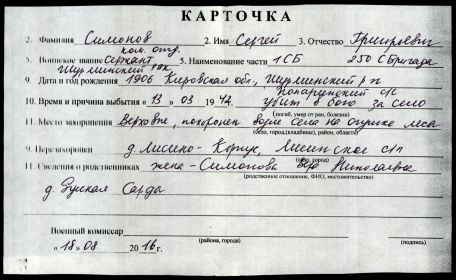 КАРТОЧКА
2. Фамилия Симонов 2. Имя Сергей 3. Отчество Григорьевич
ком. отд.
5. Воинское звание Сержант 5. Наименование части 1 СБ 250 СБригада
Шурминский
9. Дата и год рождения 1906 Кировская обл., Шурминский р-н
с/с
10. Время и причина выбытия «13» 03 1942 убит в бою за село
(погиб, умер от ран, болезни)
11. Место захоронения Верховье, похоронен возле села на опушке леса
(село, город (кладбище), район, область)
9. Перезахоронен д. Лисино-Корпус, Лисинское с/п
(село, город)
11. Сведения о родственниках жена - Симонова Вера Николаевна
(родственное отношение, ФИО, местожительство)
д. Русская Сарда
Военный комиссар
(района, города) (подпись)
«18» 08 2016 г.